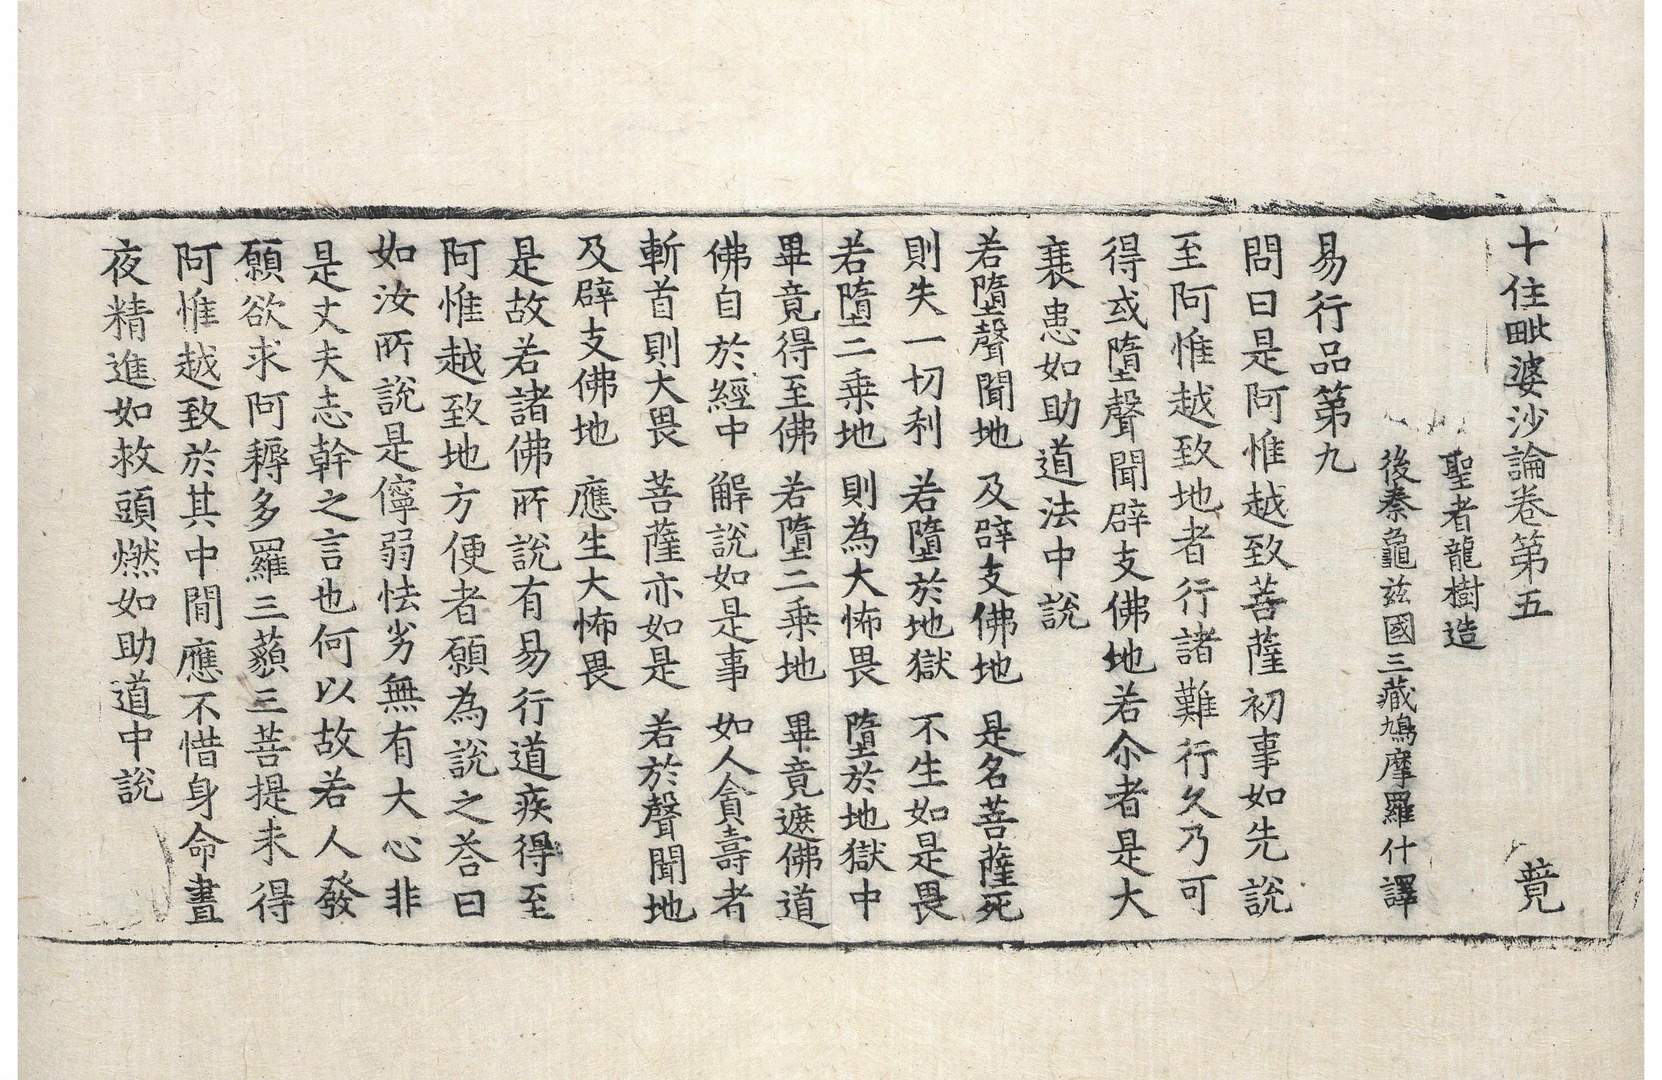 十住毗婆沙論卷第五 藑
聖者龍樹造
後秦龜兹國三藏鳩摩羅什譯
易行品第九
問曰是阿惟越致菩薩初事如先說
至阿惟越致地者行諸難行久乃可
得或墮聲聞辟支佛地若尒者是大
衰患如助道法中說
若墮聲聞地 及辟支佛地 是名菩薩死
則失一切利 若墮於地獄 不生如是畏
若墮二乗地 則為大怖畏 墮於地獄中
畢竟得至佛 若墮二乗地 畢竟遮佛道
佛自於經中 解說如是事 如人貪壽者
斬首則大畏 菩薩亦如是 若於聲聞地
及辟支佛地 應生大怖畏
是故若諸佛所說有易行道疾得至
阿惟越致地方便者願為說之荅曰
如汝所說是儜弱怯劣無有大心非
是丈夫志幹之言也何以故若人發
願欲求阿耨多羅三藐三菩提未得
阿惟越致於其中閒應不惜身命晝
夜精進如救頭燃如助道中說